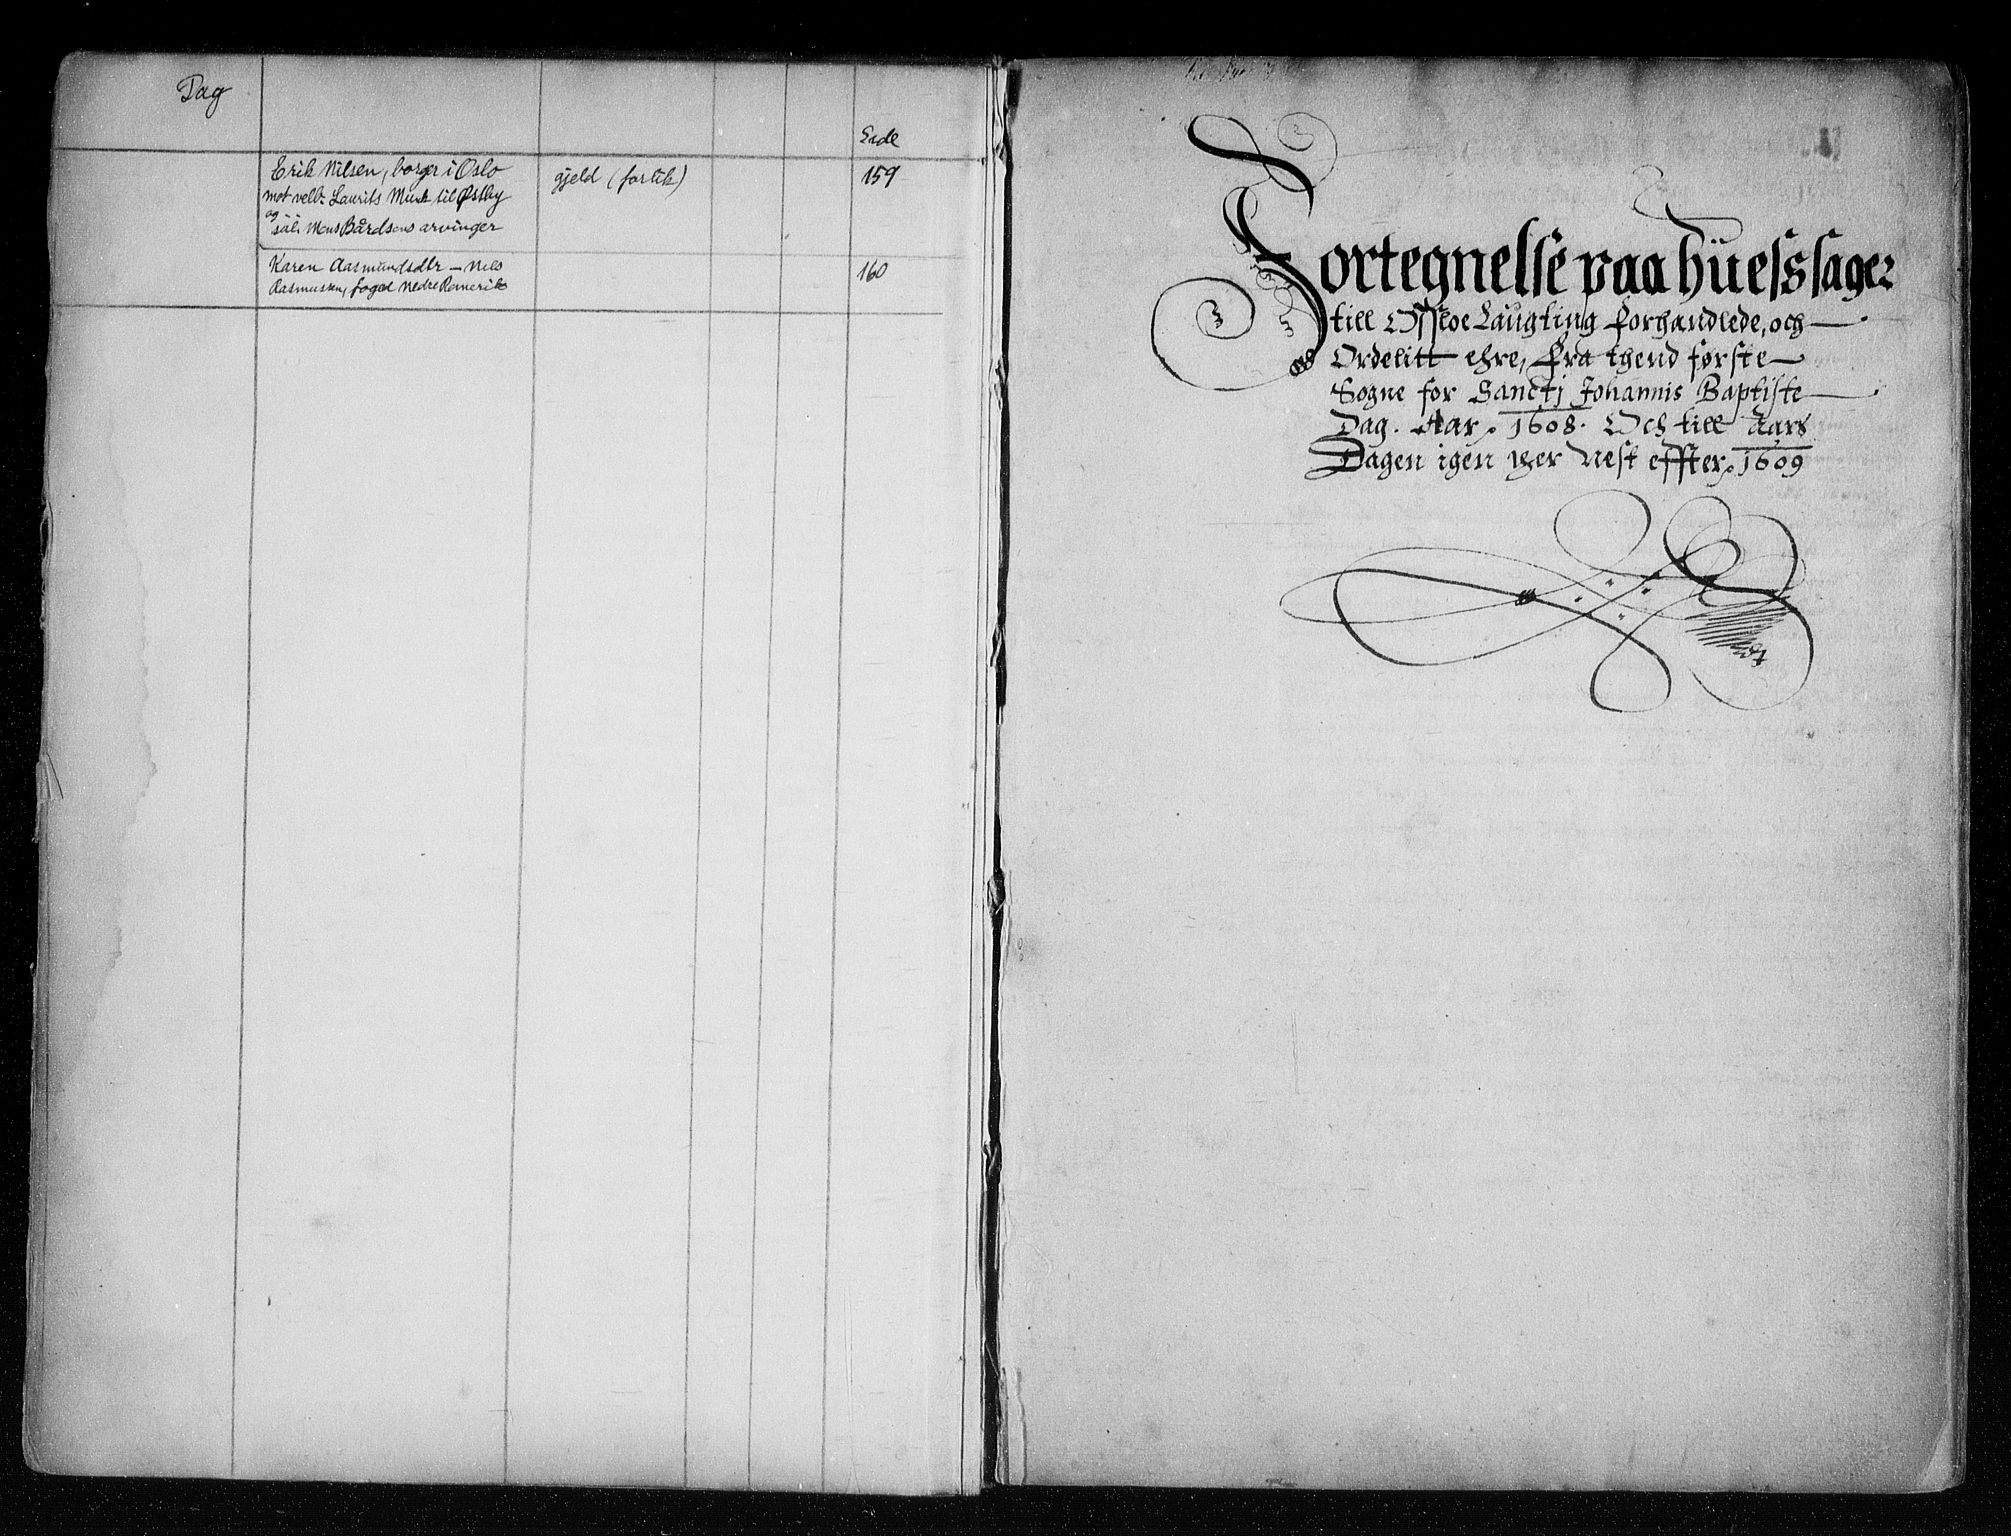 Dag
Side
Erik Nilsen, borger i Oslo
gjeld (forlik)
159
mot velb. Laurits Munk til Østby
og
sal. Mons Bårdsens arvinger
Karen Aasmundsdtr – Nils
160
Rasmussen, foged Nedre Romerike
Fortegnelsse paa huess sager
till Opsloe Laugting forhandlede, och
Ordelitt ehre, fra thend første
Sogne for Sanctj Johannis Baptiste
Dag. Aar. 1608. Och till Aars
Dagen igen per nest effter. 1609